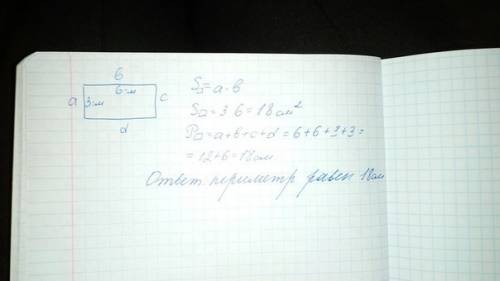 б
6 см
a 3 см c
d
S▭=a·b
S▭=3·6=18 см²
P▭=a+b+c+d=6+6+3+3=
=12+6=18см
Ответ: периметр равен 18см